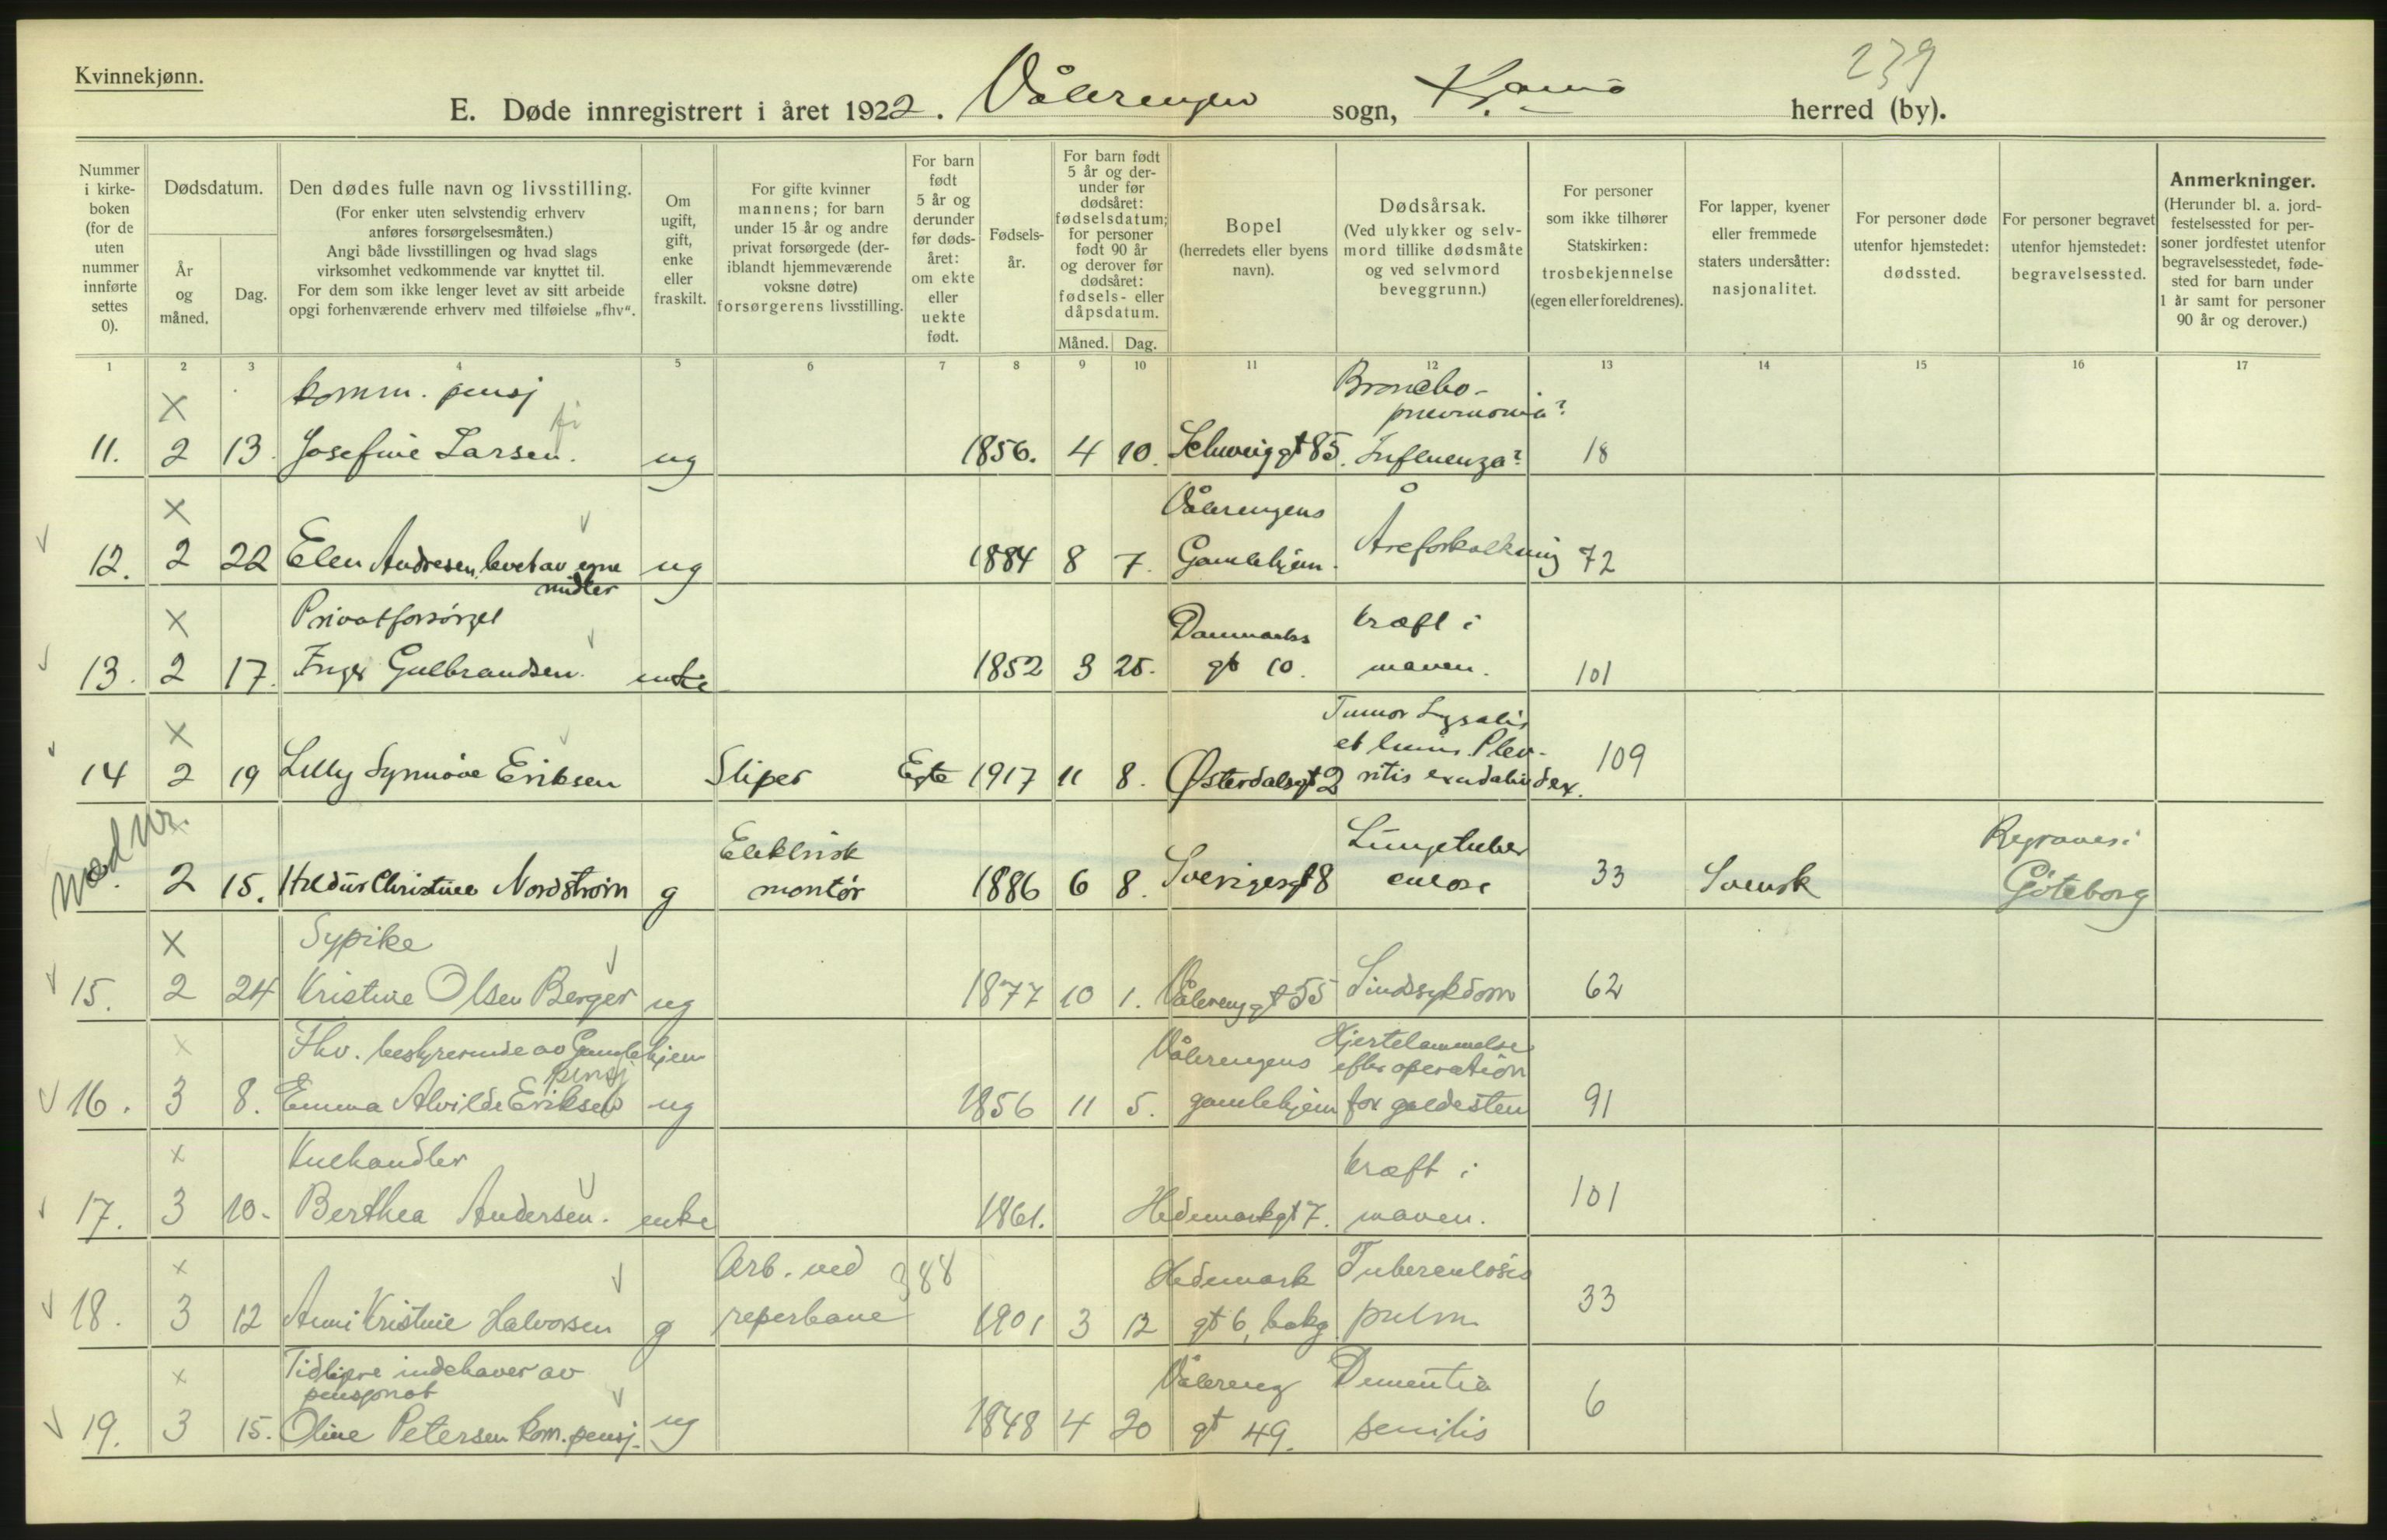 Kvinnekjønn.
239
E. Døde innregistrert i året 1922. Vålerengen sogn, Krania herred (by).
Nummer i kirke-boken (for de uten nummer innførte settes 0).
Dødsdatum.
År og måned.
Dag.
Den dødes fulle navn og livsstilling.
(For enker uten selvstendig erhverv anføres forsørgelsesmåten.)
Angi både livsstillingen og hvad slags virksomhet vedkommende var knyttet til.
For dem som ikke lenger levet av sitt arbeide opgi forhenværende erhverv med tilføielse „fhv“.
Om ugift, gift, enke eller fraskilt.
For gifte kvinner mannens; for barn under 15 år og andre privat forsørgede (deriblandt hjemmeværende voksne døtre) forsørgerens livsstilling.
For barn født 5 år og derunder før dødsåret: om ekte eller uekte født.
Fødselsår.
For barn født 5 år og derunder før dødsåret: fødselsdatum; for personer født 90 år og derover før dødsåret: fødsels- eller dåpsdatum.
Måned. Dag.
Bopel (herredets eller byens navn).
Dødsårsak.
(Ved ulykker og selvmord tillike dødsmåte og ved selvmord beveggrunn.)
For personer som ikke tilhører Statskirken: trosbekjennelse (egen eller foreldrenes).
For lapper, kvener eller fremmede staters undersåtter: nasjonalitet.
For personer døde utenfor hjemstedet: dødssted.
For personer begravet utenfor hjemstedet: begravelsessted.
Anmerkninger.
(Herunder bl. a. jordfestelsessted for personer jordfestet utenfor begravelsesstedet, fødested for barn under 1 år samt for personer 90 år og derover.)
1 2 3 4 5 6 7 8 9 10 11 12 13 14 15 16 17
X komm. pensj Broncho-pneumonia?
11. 2 13. Josefine Larsen. ug 1856. 4 10. Schweiggt 85. Influenza? 18
X Vålerengens
12. 2 22 Elen Andresen, levet av egne midler ug 1884 8 7. Gamlehjem. Åreforkalkning 72
X Privatforsørget Danmarks kræft i
13. 2 17. Inger Gulbrandsen. enke 1852 3 25. gt 10. maven. 101
X Tumor
14 2 19 Lilly Synnøve Eriksen Sliper Egte 1917 11 8. Østerdalsgt 2 109
Med nr. Elektrisk Lungetuber Begraves i
2 15. Christine Nordstrøm g montør 1886 6 8. Sverigesgt 8 culose 33 Svensk Göteborg
X Sypike
15. 2 24 Kristine Olsen Berger ug 1877 10 1. Vålerenggt 55 Sindssykdom 62
X Fhv. bestyrerinde av Gamlehjem pensj Vålerengens Hjertelammelse efter operation
16. 3 8. Emma Alvilde Eriksen ug 1856 11 5. gamlehjem for galdesten 91
X Kulhandler kræft i
17. 3 10. Berthea Andersen. enke 1861. Hedemarkgt 7. maven. 101
X Arb. ved 388 Hedemark Tuberculosis
18. 3 12 Anni Kristine Halvorsen g reperbane 1901 3 12 gt 6, bakg. pulm 33
X Tidligere indehaver av pensjonat Vålereng Dementia
19. 3 15. Oline Petersen kom. pensj. ug 1848 4 20 gt 49. senilis 6